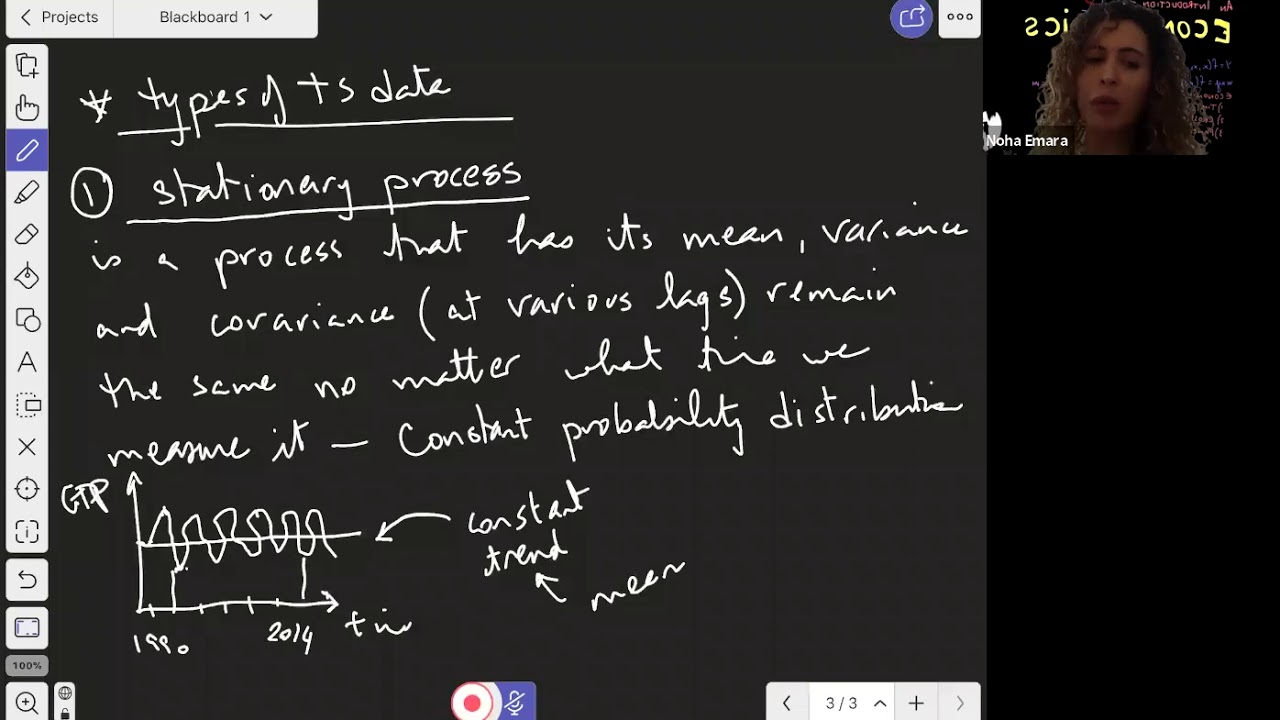 Projects
Blackboard 1
* types of ts data
① stationary process
is a process that has its mean, variance
and covariance (at various lags) remain
the same no matter what time we
measure it — Constant probability distribution
constant
trend
mean
1990
2014
100%
3 / 3
A
Noha Emara
An Introduction